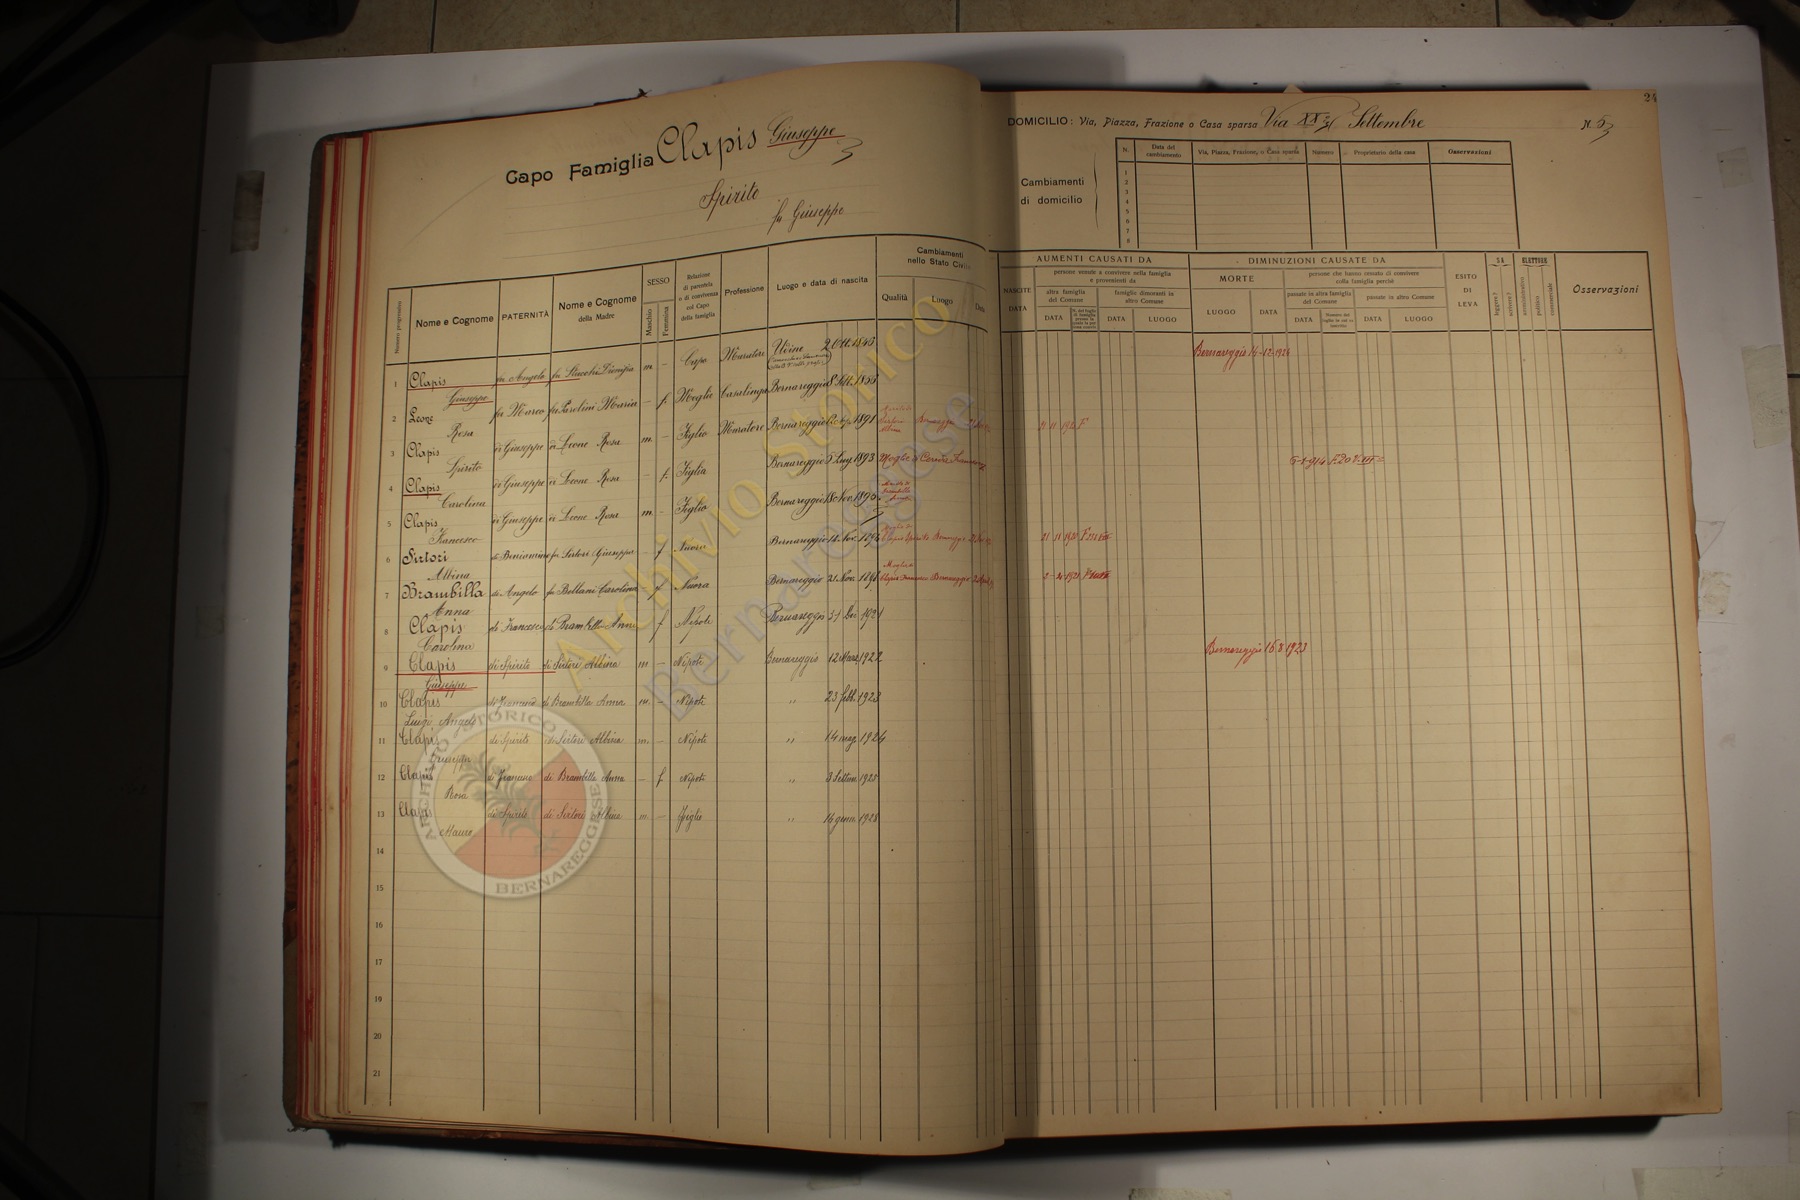 24
Capo Famiglia Clapis Giuseppe
Spirito
fu Giuseppe
DOMICILIO: Via, Piazza, Frazione o Casa sparsa Via XX Settembre
N. 53
Cambiamenti
di domicilio
N. Data del cambiamento Via, Piazza, Frazione, o Casa sparsa Numero Proprietario della casa Osservazioni
1
2
3
4
5
6
7
8
Numero progressivo
Nome e Cognome
PATERNITÀ
Nome e Cognome
della Madre
SESSO
Maschio
Femmina
Relazione
di parentela
o di convivenza
col Capo
della famiglia
Professione
Luogo e data di nascita
Cambiamenti
nello Stato Civile
Qualità Luogo Data
NASCITE
DATA
AUMENTI CAUSATI DA
persone venute a convivere nella famiglia
e provenienti da
altra famiglia
del Comune
DATA
famiglie dimoranti in
altro Comune
DATA LUOGO
DIMINUZIONI CAUSATE DA
MORTE
LUOGO DATA
persone che hanno cessato di convivere
colla famiglia perchè
passate in altra famiglia
del Comune
DATA
passate in altro Comune
DATA LUOGO
ESITO
DI
LEVA
SA
leggere?
scrivere?
ELETTORE
amministrativo
politico
commerciale
Osservazioni
1 Clapis fu Angelo fu Dionisa m. - Capo Muratore Udine 2 Ott. 1843 Bernareggio 14-12-1926
Giuseppe
2 Leone fu Marco fu Parolini Maria - f. Moglie Casalinga Bernareggio 8 Sett. 1855
Rosa
3 Clapis di Giuseppe di Leone Rosa m. - Figlio Muratore Bernareggio 1891 Sertori Albina Bernareggio
Spirito
4 Clapis di Giuseppe di Leone Rosa - f. Figlia Bernareggio 5 Lug. 1893 Moglie di
Carolina
5 Clapis di Giuseppe di Leone Rosa m. - Figlio Bernareggio 18 Nov. 1895
Francesco
6 Sirtori di Beniamino fu Sirtori Giuseppa - f Nuora Bernareggio 14 Nov. 1896 Clapis Spirito Bernareggio
Albina
7 Brambilla di Angelo fu Bellani Carolina f Nuora Bernareggio 21 Nov. Moglie Clapis Francesco Bernareggio
Anna
8 Clapis di Francesco di Brambilla Anna f Nipote Bernareggio 31 Dic. 1921
Carolina
9 Clapis di Spirito di Sirtori Albina m - Nipote Bernareggio 12 Marz. 1922 Bernareggio 16 8 1923
Giuseppe
10 Clapis di Francesco di Brambilla Anna m. - Nipote " 23 febb. 1923
Luigi Angelo
11 Clapis di Spirito di Sirtori Albina m. - Nipote " 14 mag. 1924
Giuseppe
12 Clapis di Francesco di Brambilla Anna - f Nipote " 3 Settem. 1925
Rosa
13 Clapis di Spirito di Sirtori Albina m. - Figlio " 14 genn. 1928
Mauro
14
15
16
17
18
19
20
21
Archivio Storico
Bernareggese
ARCHIVIO STORICO
BERNAREGGESE